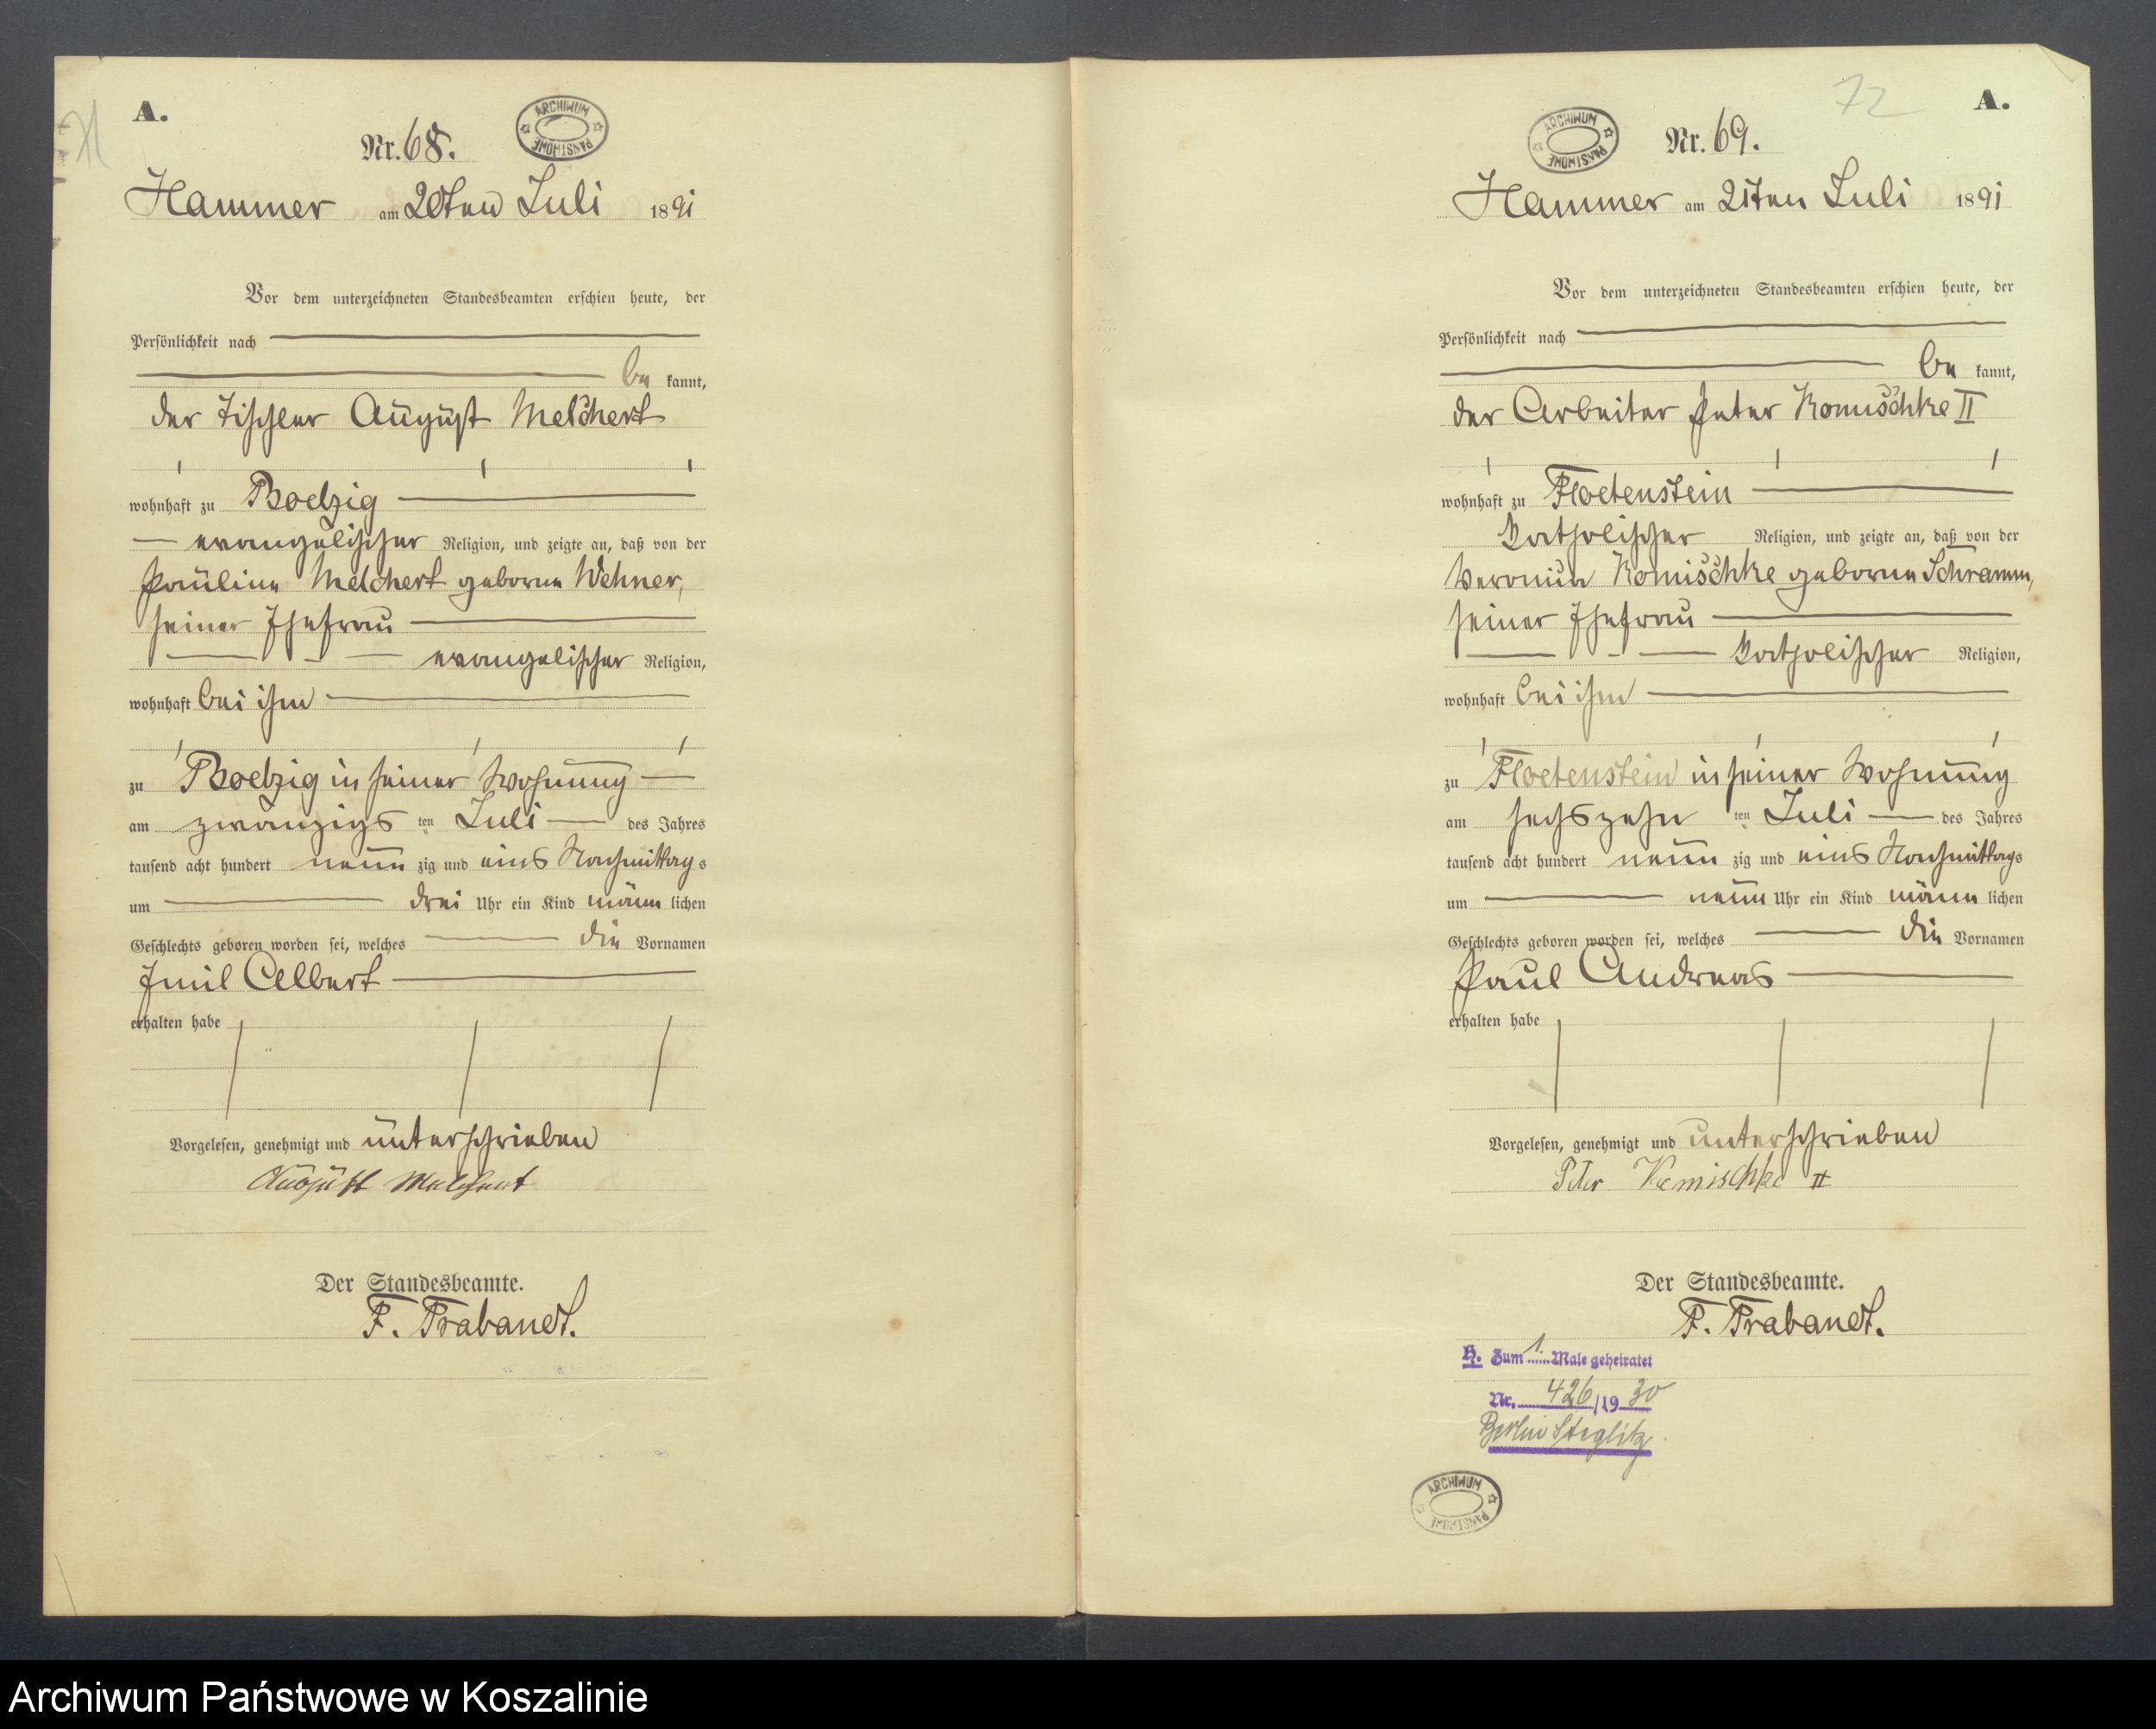 71
A.
ARCHIWUM PAŃSTWOWE
Nr. 68.
Hammer am 20ten Juli 1891
Vor dem unterzeichneten Standesbeamten erschien heute, der
Persönlichkeit nach
be kannt,
der Tischler August Melchert
wohnhaft zu Boelzig
evangelischer Religion, und zeigte an, daß von der
Pauline Melchert geborne Wehner,
seiner Ehefrau
evangelischer Religion,
wohnhaft bei ihm
zu Boelzig in seiner Wohnung
am zwanzigs ten Juli des Jahres
tausend acht hundert neun zig und eins Nachmittags
um drei Uhr ein Kind männ lichen
Geschlechts geboren worden sei, welches die Vornamen
Emil Albert
erhalten habe
Vorgelesen, genehmigt und unterschrieben
August Melchert
Der Standesbeamte.
F. Trabandt.
72
A.
ARCHIWUM PAŃSTWOWE
Nr. 69.
Hammer am 21ten Juli 1891
Vor dem unterzeichneten Standesbeamten erschien heute, der
Persönlichkeit nach
be kannt,
der Arbeiter Peter Komischke II
wohnhaft zu Floetenstein
katholischer Religion, und zeigte an, daß von der
Veronika Komischke geborne Schramm,
seiner Ehefrau
katholischer Religion,
wohnhaft bei ihm
zu Floetenstein in seiner Wohnung
am sechszehn ten Juli des Jahres
tausend acht hundert neun zig und eins Nachmittags
um neun Uhr ein Kind männ lichen
Geschlechts geboren worden sei, welches die Vornamen
Paul Andreas
erhalten habe
Vorgelesen, genehmigt und unterschrieben
Peter Komischke II
Der Standesbeamte.
F. Trabandt.
H. Zum 1. Male geheiratet
Nr. 426/1930
Berlin Steglitz.
ARCHIWUM PAŃSTWOWE
Archiwum Państwowe w Koszalinie